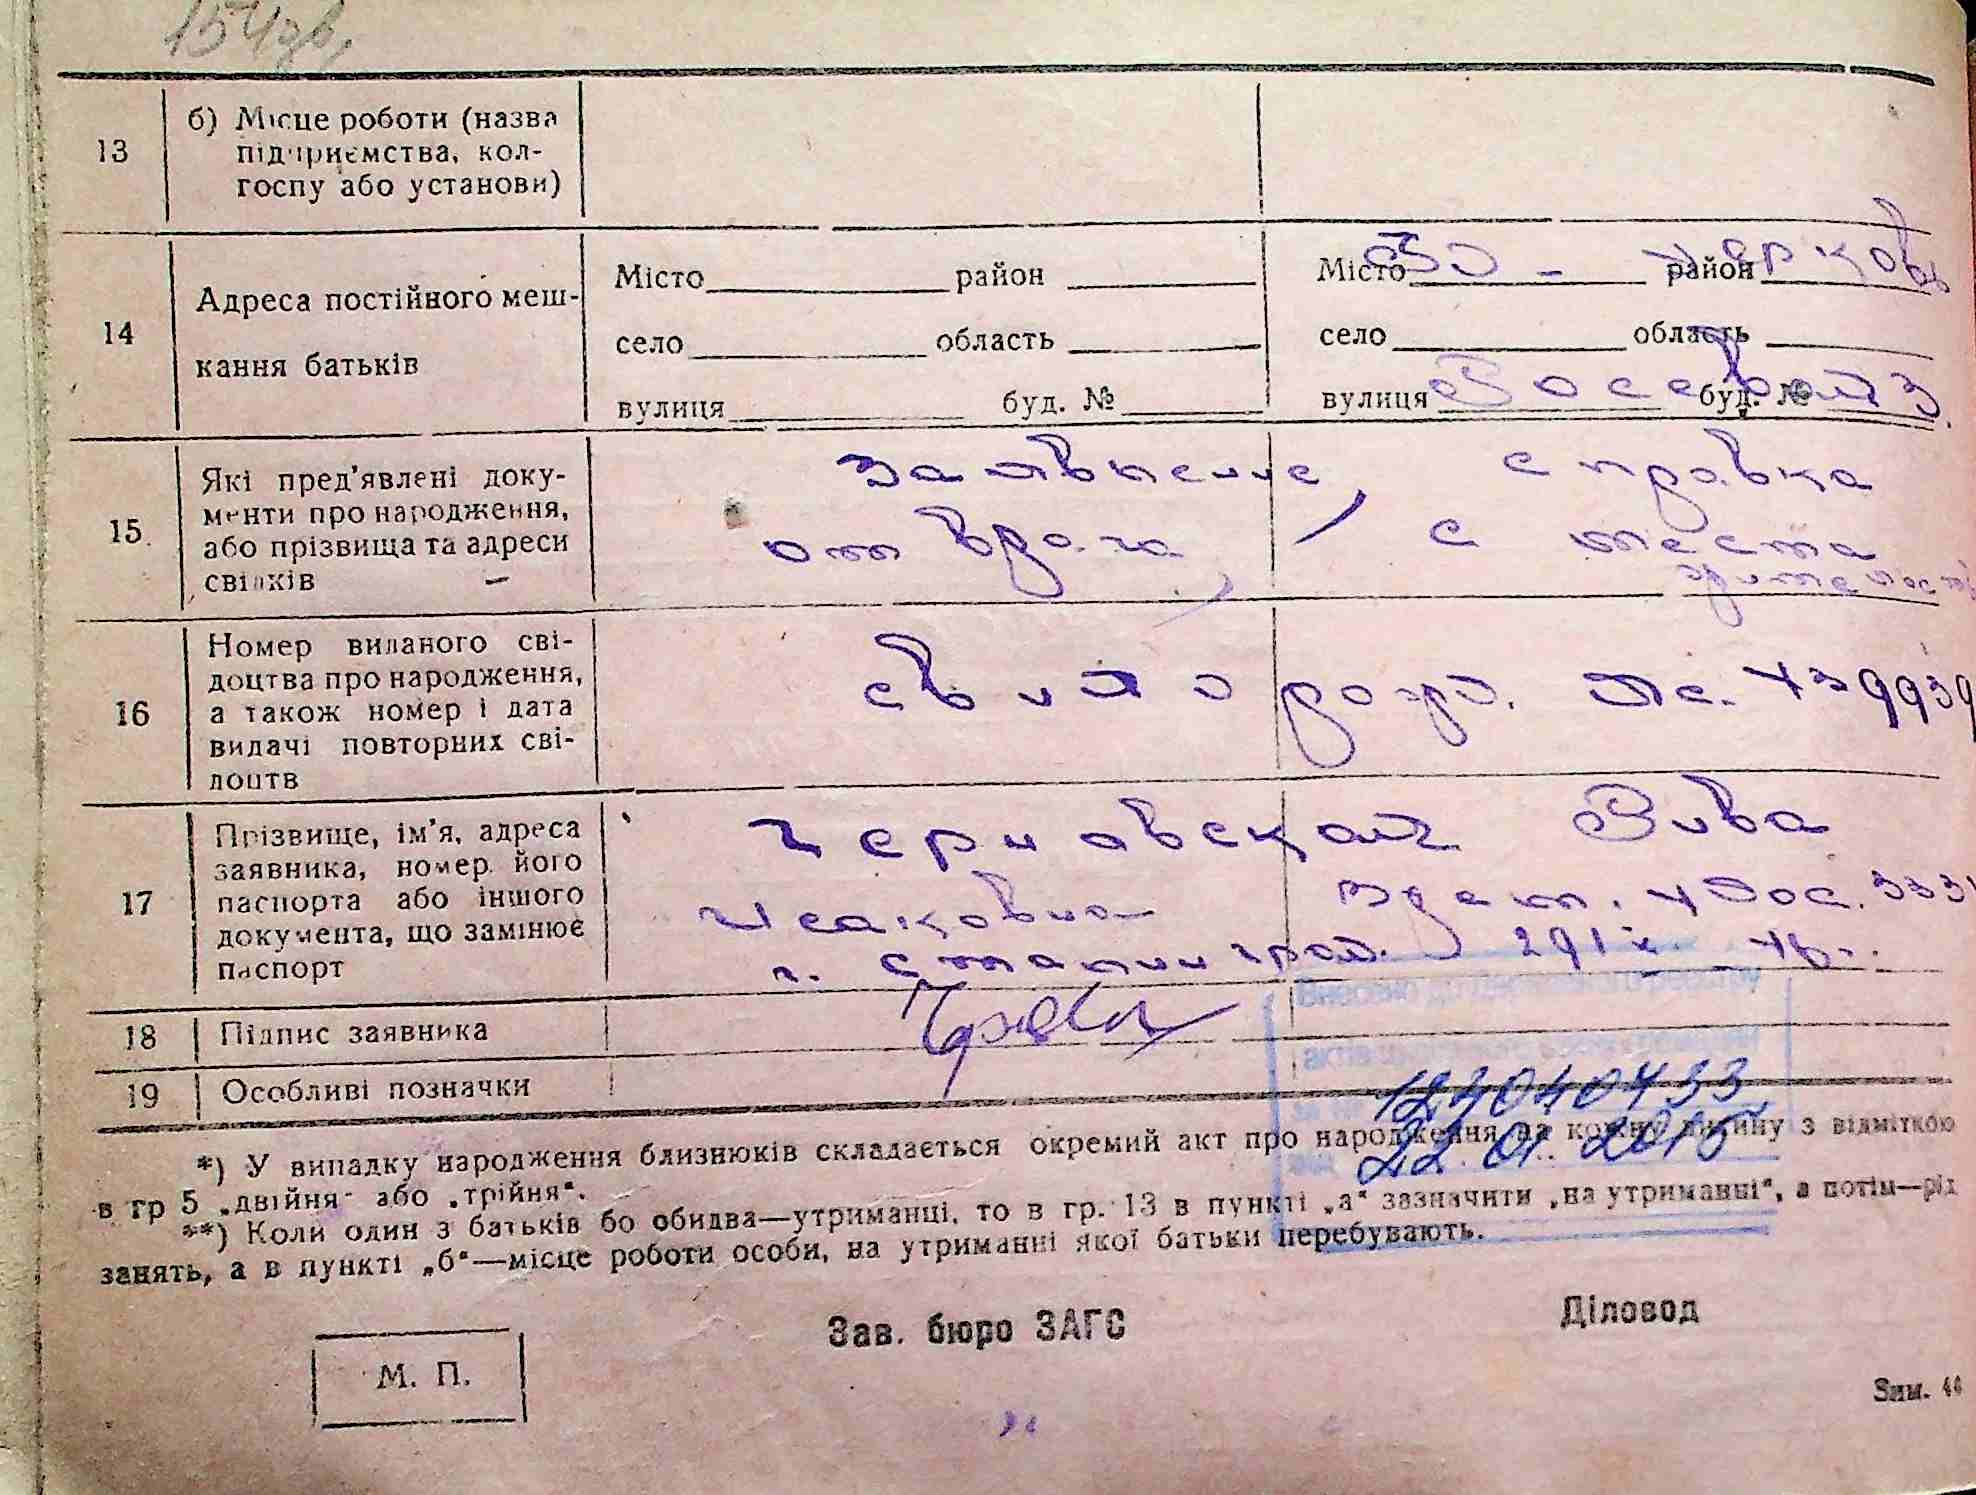 154 зв.
13 б) Місце роботи (назва
підприємства, кол-
госпу або установи)
14 Адреса постійного меш-
кання батьків
Місто район
село область
вулиця буд. №
Місто район
село область
вулиця буд. №
15 Які пред'явлені доку-
менти про народження,
або прізвища та адреси
свідків
Заявление, справка
от врача, с места
жительств
16 Номер виданого сві-
доцтва про народження,
а також номер і дата
видачі повторних сві-
доцтв
св и о рожд.
17 Прізвище, ім'я, адреса
заявника, номер його
паспорта або іншого
документа, що замінює
паспорт
Черновская Рива
Исаковна
г. Сталинград. 291
18 Підпис заявника
19 Особливі позначки
Внесено до Державного реєстру
актів цивільного стану громадян
за №
123040433
22.01.2015
*) У випадку народження близнюків складається окремий акт про народження на кожну дитину з відміткою
в гр 5 „двійня" або „трійня".
**) Коли один з батьків бо обидва—утриманці, то в гр. 13 в пункті „а" зазначити „на утриманні", а потім—рід
занять, а в пункті „б"—місце роботи особи, на утриманні якої батьки перебувають.
Зав. бюро ЗАГС
Діловод
М. П.
Зам. 44